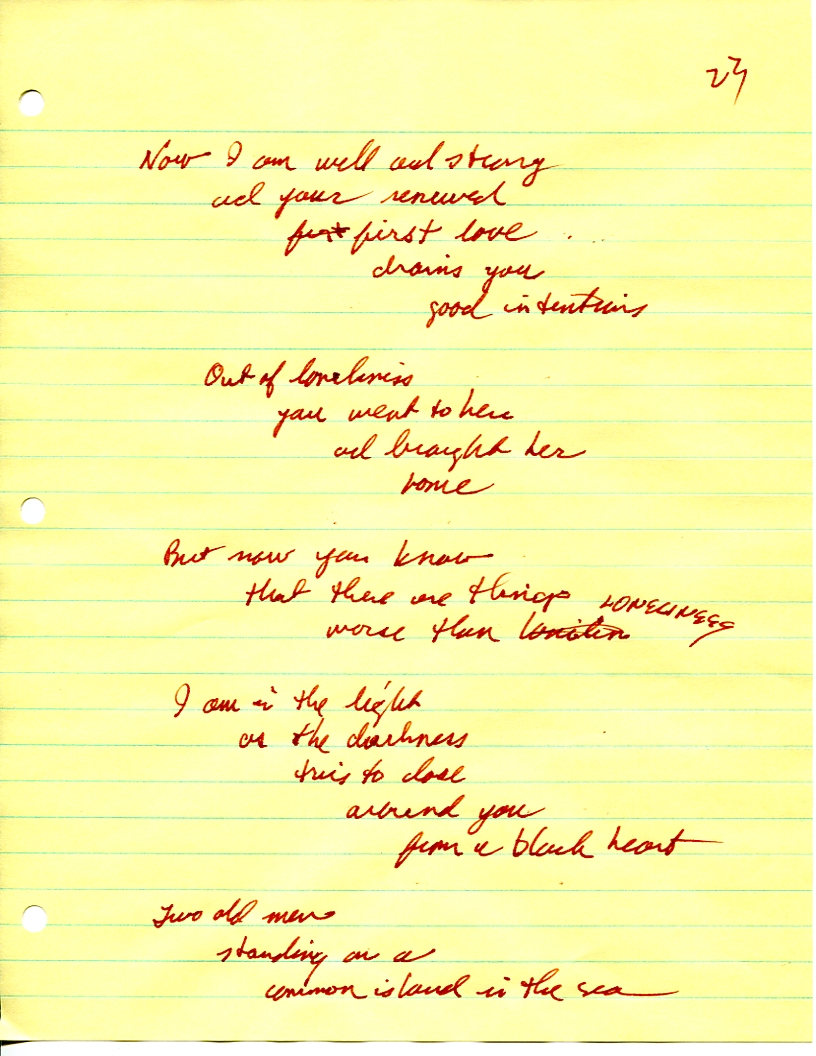 23
Now I am well and strong
and your renewed
first first love
drains you
good intentions
Out of loneliness
you went to her
and brought her
home
But now you know
that there are things
worse than LONELINESS
I am in the light
as the darkness
tries to close
around you
from a black heart
Two old men
standing on a
common island in the sea